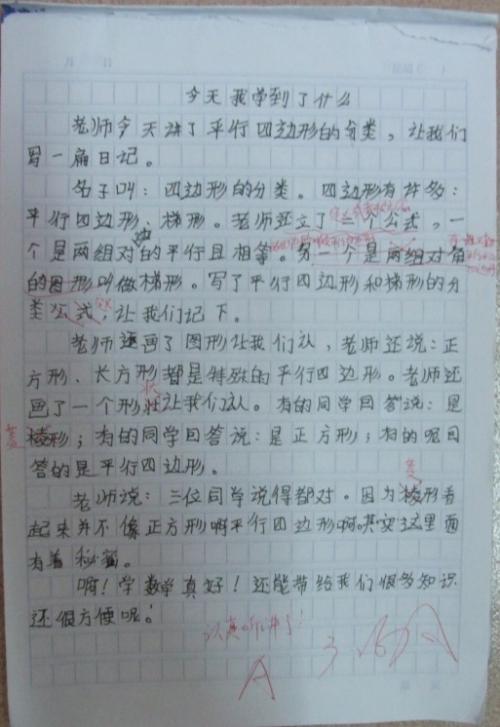 今天我学到了什么
老师今天讲了平行四边形的分类，让我们
写一篇日记。
名字叫：四边形的分类。四边形有许多：
平行四边形、梯形。老师还立了二个公式，一
个是两组对边的平行且相等。另一个是两组对角
的图形叫做梯形。写了平行四边形和梯形的分
类公式，让我们记下。
老师还画了图形让我们认，老师还说：正
方形、长方形都是特殊的平行四边形。老师还
画了一个形状让我们认。有的同学回答说：是
棱形；有的同学回答说：是正方形；有的呢回
答的是平行四边形。
老师说：三位同学说得都对。因为棱形看
起来并不像正方形啊平行四边形啊。其实这里面
有着秘密。
啊！学数学真好！还能带给我们很多知识
还很方便呢！
认真听讲了！
A